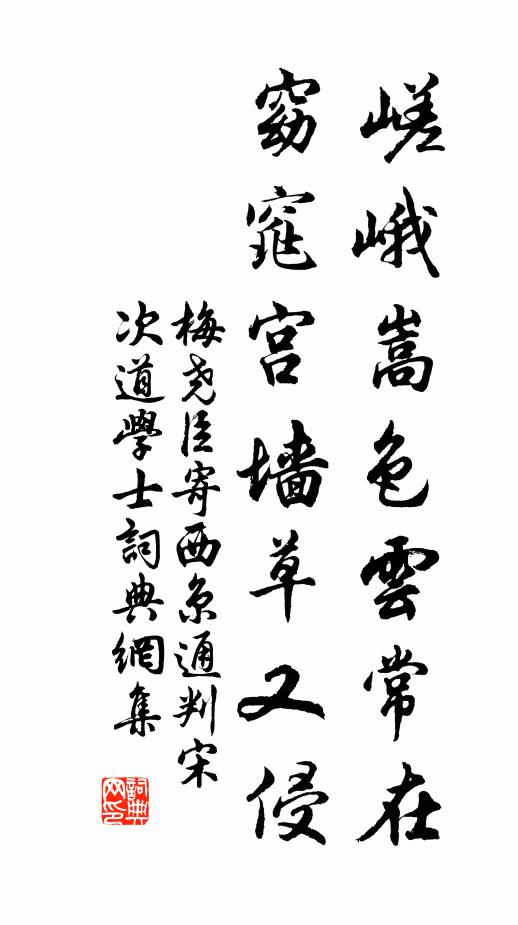 嵯峨嵩色雲常在
窈窕宫墙草又侵
梅尧臣寄西京通判宋
次道學士詞典網集
詞典網印